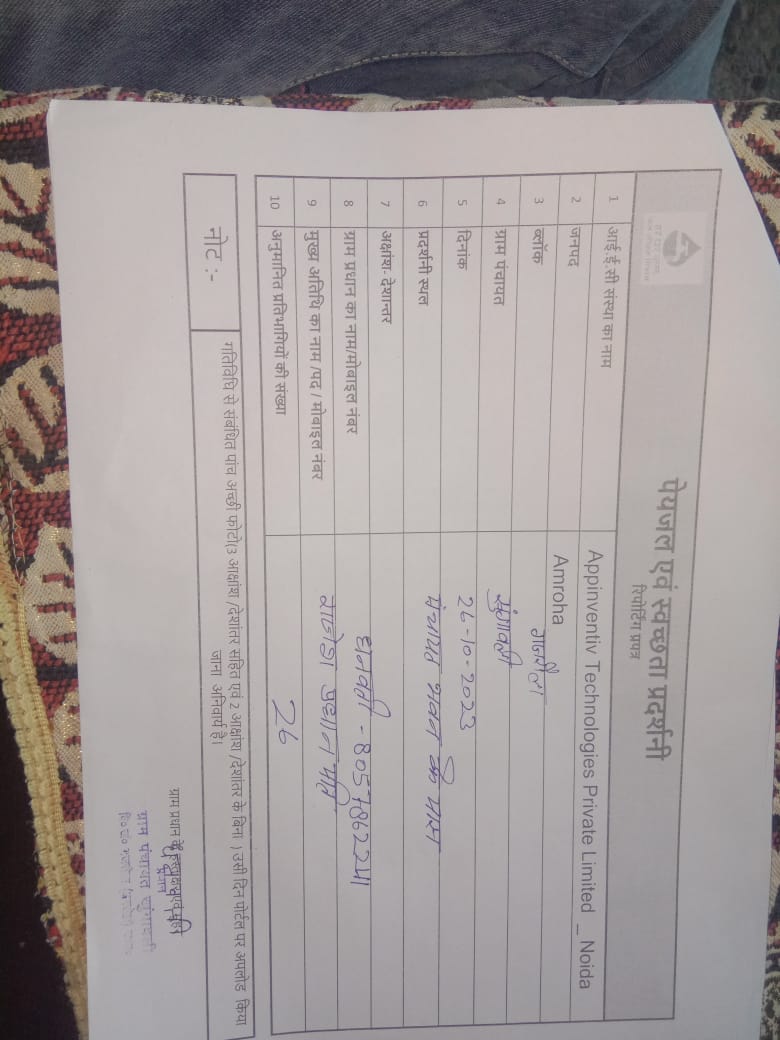 पेयजल एवं स्वच्छता प्रदर्शनी
रिपोर्टिंग प्रपत्र
1 आई.ई.सी संस्था का नाम Appinventiv Technologies Private Limited _ Noida
2 जनपद Amroha
3 ब्लॉक गजरौला
4 ग्राम पंचायत
5 दिनांक 26-10-2023
6 प्रदर्शनी स्थल पंचायत भवन के पास
7 अक्षांश- देशान्तर
8 ग्राम प्रधान का नाम/मोबाइल नंबर धनवती - 8057862241
9 मुख्य अतिथि का नाम /पद / मोबाइल नंबर प्रधान पति
10 अनुमानित प्रतिभागियों की संख्या 26
नोट :-
गतिविधि से संबंधित पांच अच्छी फोटो(3 आक्षांश /देशांतर सहित एवं 2 आक्षांश /देशांतर के बिना ) उसी दिन पोर्टल पर अपलोड किया
जाना अनिवार्य है।
ग्राम प्रधान के हस्ताक्षर एवं मुहर
ग्राम पंचायत